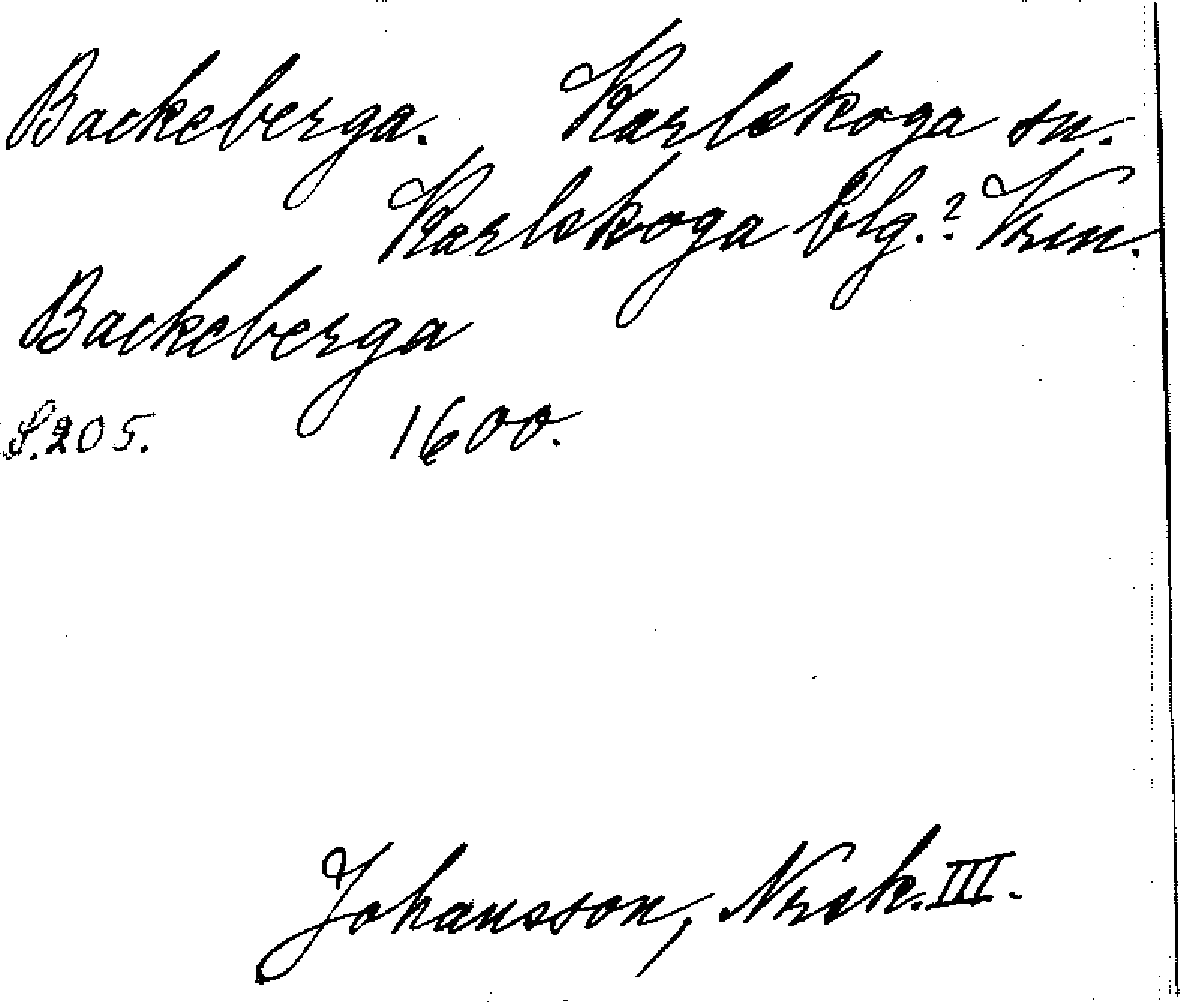 Backeberga. Karlskoga sn.
Karlskoga blg.? Vrm.
Backeberga
S.205. 1600.
Johansson, Nrsk. III.